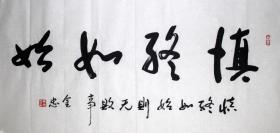 慎终如始
慎终如始则无败事 金忠